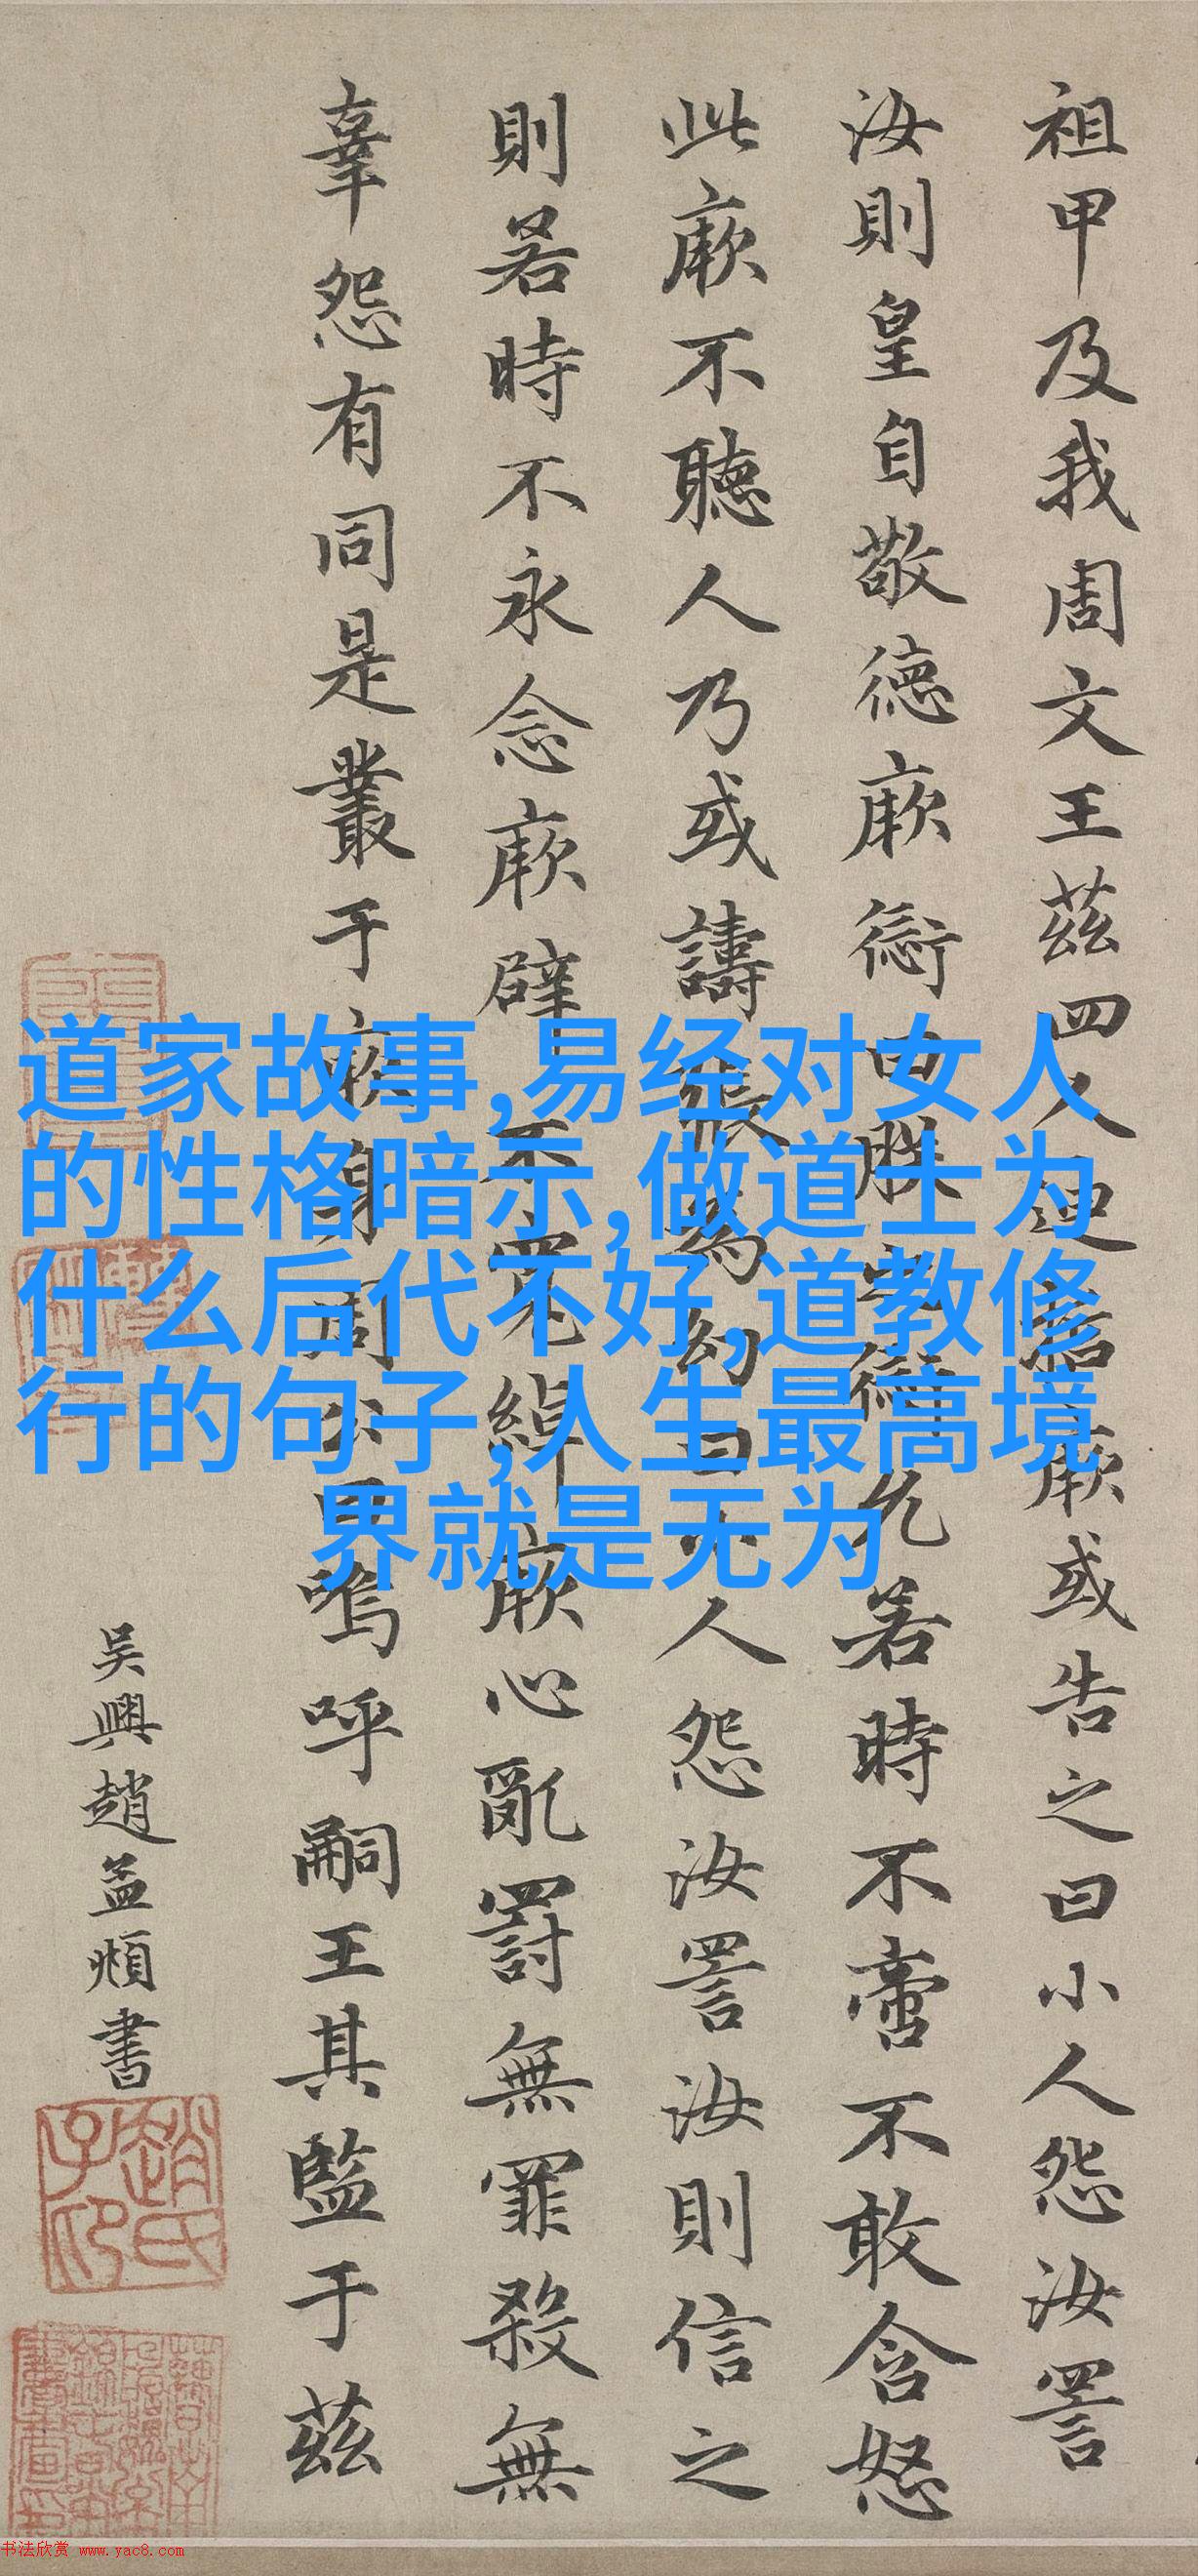 祖甲及我周文王茲四人迪哲厥或告之曰小人怨汝詈
汝則皇自敬德厥愆曰朕之愆允若時不啻不敢含怒
此厥不聽人乃或譸張為幻曰小人怨汝詈汝則信之
則若時不永念厥辟不寬綽厥心亂罰無罪殺無
辜怨有同是叢于厥身周公曰嗚呼嗣王其監于茲
吴興趙孟頫書
趙氏子印
道家故事,易经对女人
的性格暗示,做道士为
什么后代不好,道教修
行的句子,人生最高境
界就是无为
书法欣赏 www.yac8.com